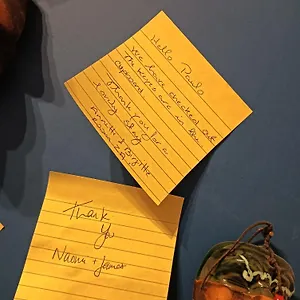 Hello Paulo
We have checked out
The keys are in the
cupboard
Thank you for a
lovely stay
Thank
You
Naomi + James